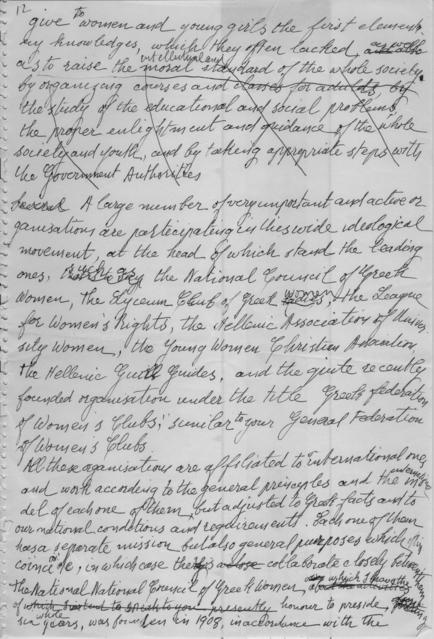 12
give to women and young girls the first elementary
knowledges, which they often lacked, and
as to raise the intellectual and moral standard of the whole society
by organizing courses and classes for adults, by
the study of the educational and social problems
the proper enlightment and guidance of the whole
society and youth, and by taking appropriate steps with
the Government Authorities
A large number of very important and active or
ganisations are participating in this wide ideological
movement, at the head of which stand the leading
ones, such as the National Council of Greek
Women, the Lyceum Club of Greek women, the League
for Women's Rights, the Hellenic Association of Univer
sity Women, the Young Women Christian Association
the Hellenic Guides, and the quite recently
founded organisation under the title Greek federation
of Women's Clubs, similar to your General Federation
of Women's Clubs.
All these organisations are affiliated to International ones
and work according to the general principles and the
del of each one of them but adjusted to Greek facts and to
our national conditions and requirements. Each one of them
has a separate mission but also general purposes which often
coincide, in which case they collaborate closely between
The National Council of Greek Women, which I have the
honour to preside,
six whole years, was founded in 1908, in accordance with the